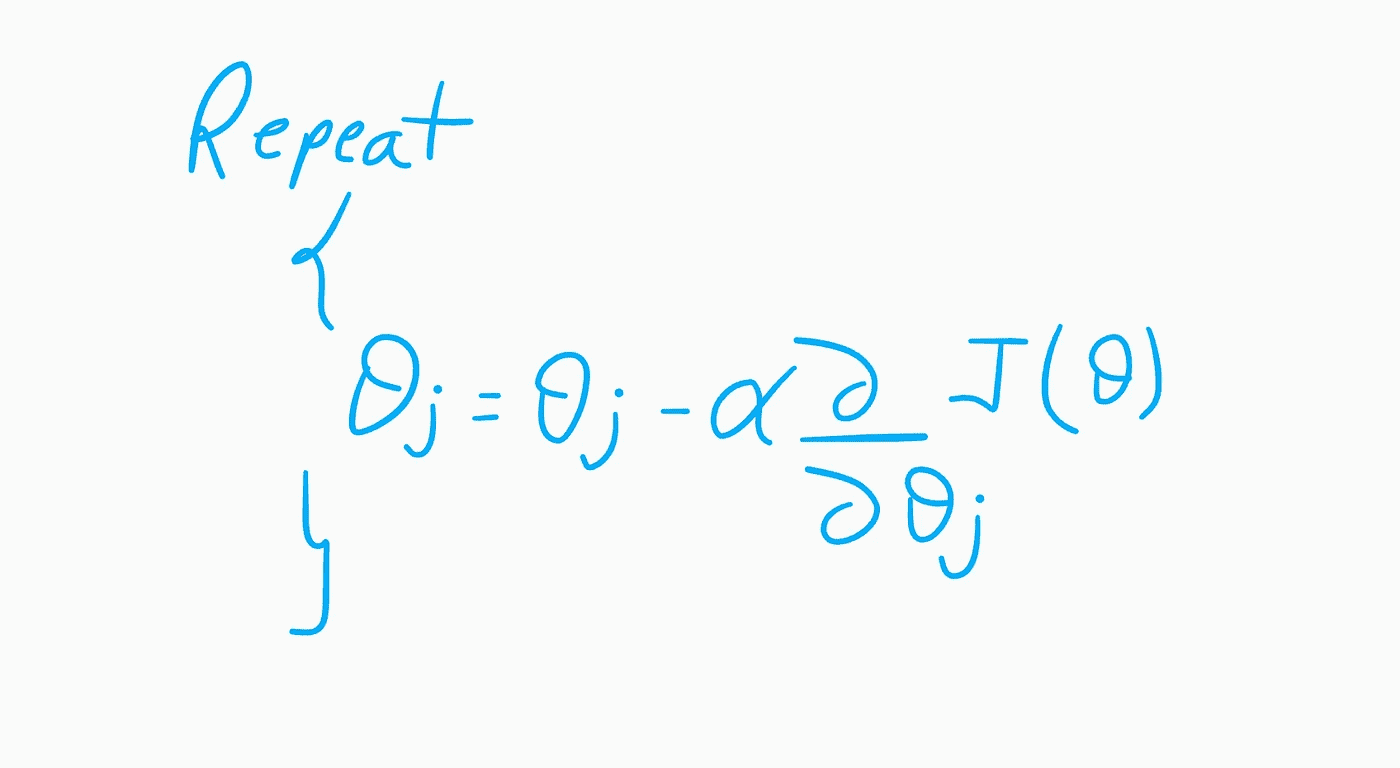 Repeat
{
θj = θj - α ∂/∂θj J(θ)
}